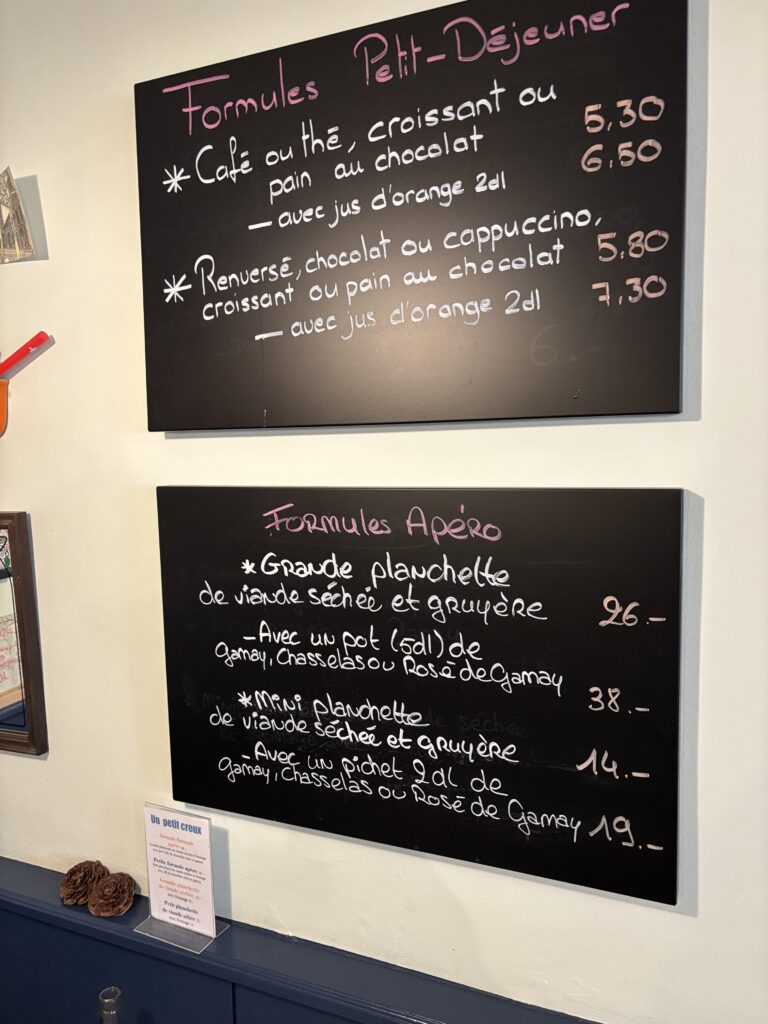 Formules Petit-Déjeuner
* Café ou thé, croissant ou
pain au chocolat 5.30
— avec jus d'orange 2dl 6.50
* Renversé, chocolat ou cappuccino,
croissant ou pain au chocolat 5.80
— avec jus d'orange 2dl 7.30
Formules Apéro
* Grande planchette
de viande séchée et gruyère 26.-
- Avec un pot (5dl) de
Gamay, Chasselas ou Rosé de Gamay 38.-
* Mini planchette
de viande séchée et gruyère 14.-
- Avec un pichet 2dl de
Gamay, Chasselas ou Rosé de Gamay 19.-
Un petit creux
Petite formule apéro
Grande planchette
de viande séchée
Petit planchette
de viande séchée